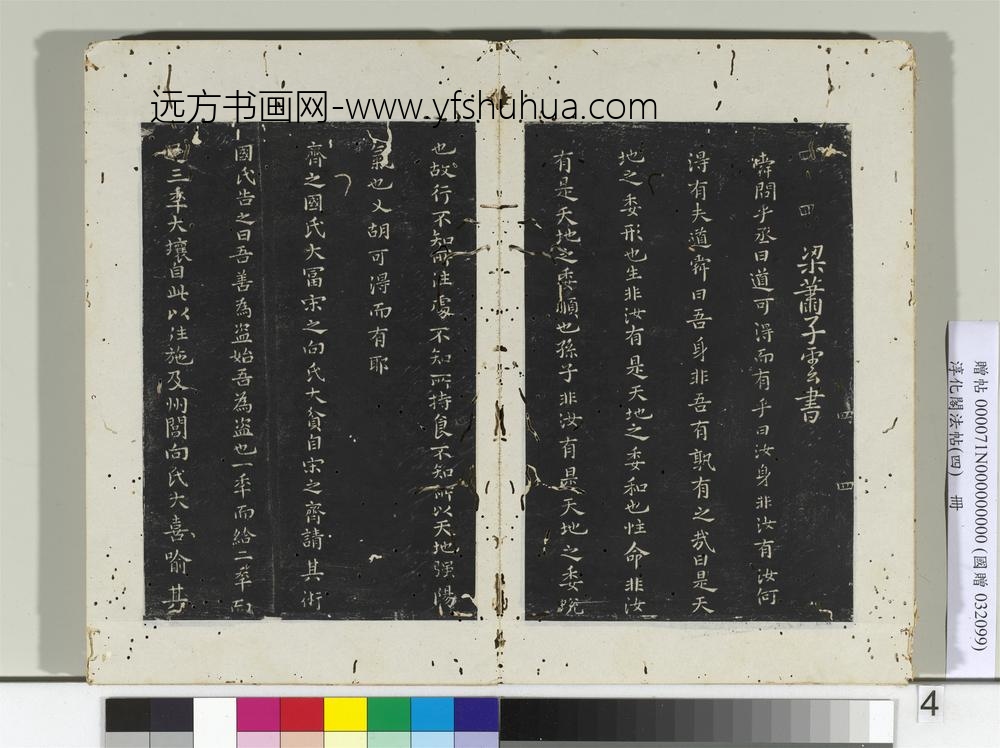 远方书画网-www.yfshuhua.com
梁蕭子雲書
舜問乎丞曰道可得而有乎曰汝身非汝有汝何
得有夫道舜曰吾身非吾有孰有之哉曰是天
地之委形也生非汝有是天地之委和也性命非汝
有是天地之委順也孫子非汝有是天地之委蛻
也故行不知所往處不知所持食不知所以天地强陽
氣也又胡可得而有耶
齊之國氏大富宋之向氏大貧自宋之齊請其術
國氏告之曰吾善為盗始吾為盗也一年而給二年而
三年大壤自此以往施及州閭向氏大喜喻其
贈帖 000071N000000000 (國贈 032099)
淳化閣法帖(四) 冊
4